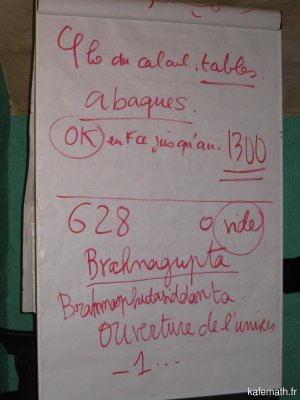 du calcul : tables.
abaques.
OK en Fce jusqu'au. 1300
628 0 vide
Brahmagupta
Brahmasphutasiddanta
ouverture de l'univers
-1...
kafemath.fr